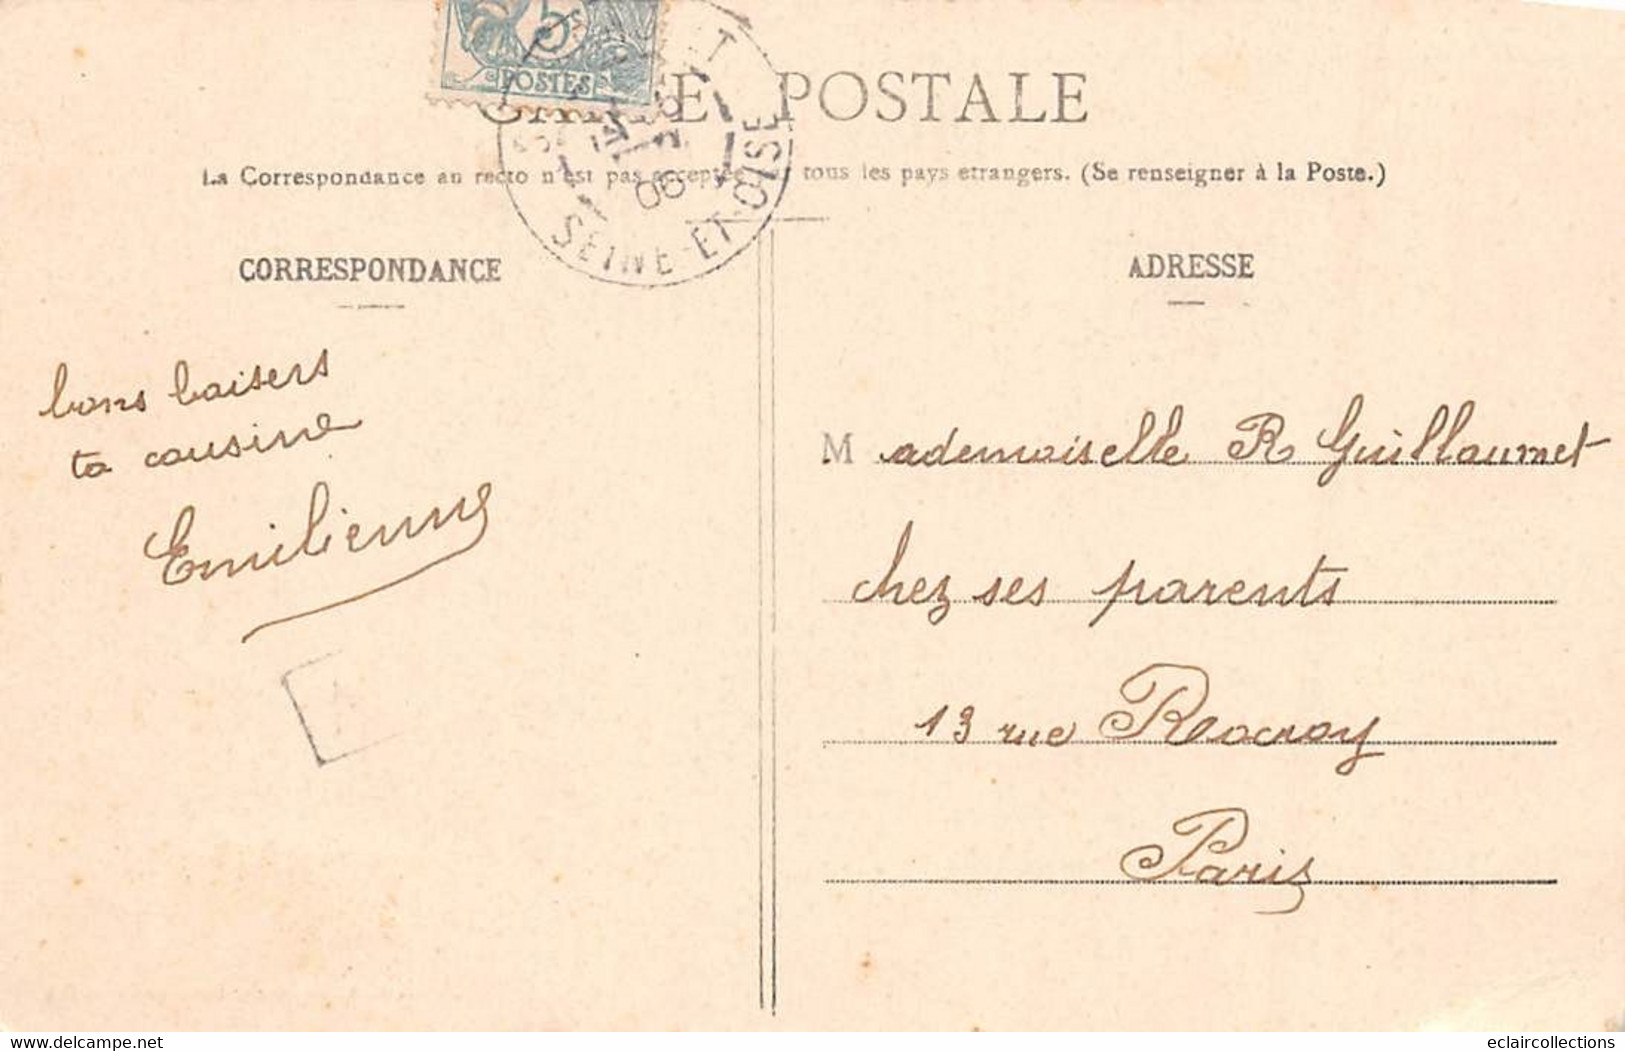 5
POSTES
CARTE POSTALE
La Correspondance au recto n'est pas acceptée par tous les pays etrangers. (Se renseigner à la Poste.)
06
SEINE-ET-OISE
CORRESPONDANCE
ADRESSE
bons baisers
ta cousine
Emilienne
Mademoiselle R Guillaumet
chez ses parents
13 rue Rocroy
Paris
www.delcampe.net
eclaircollections